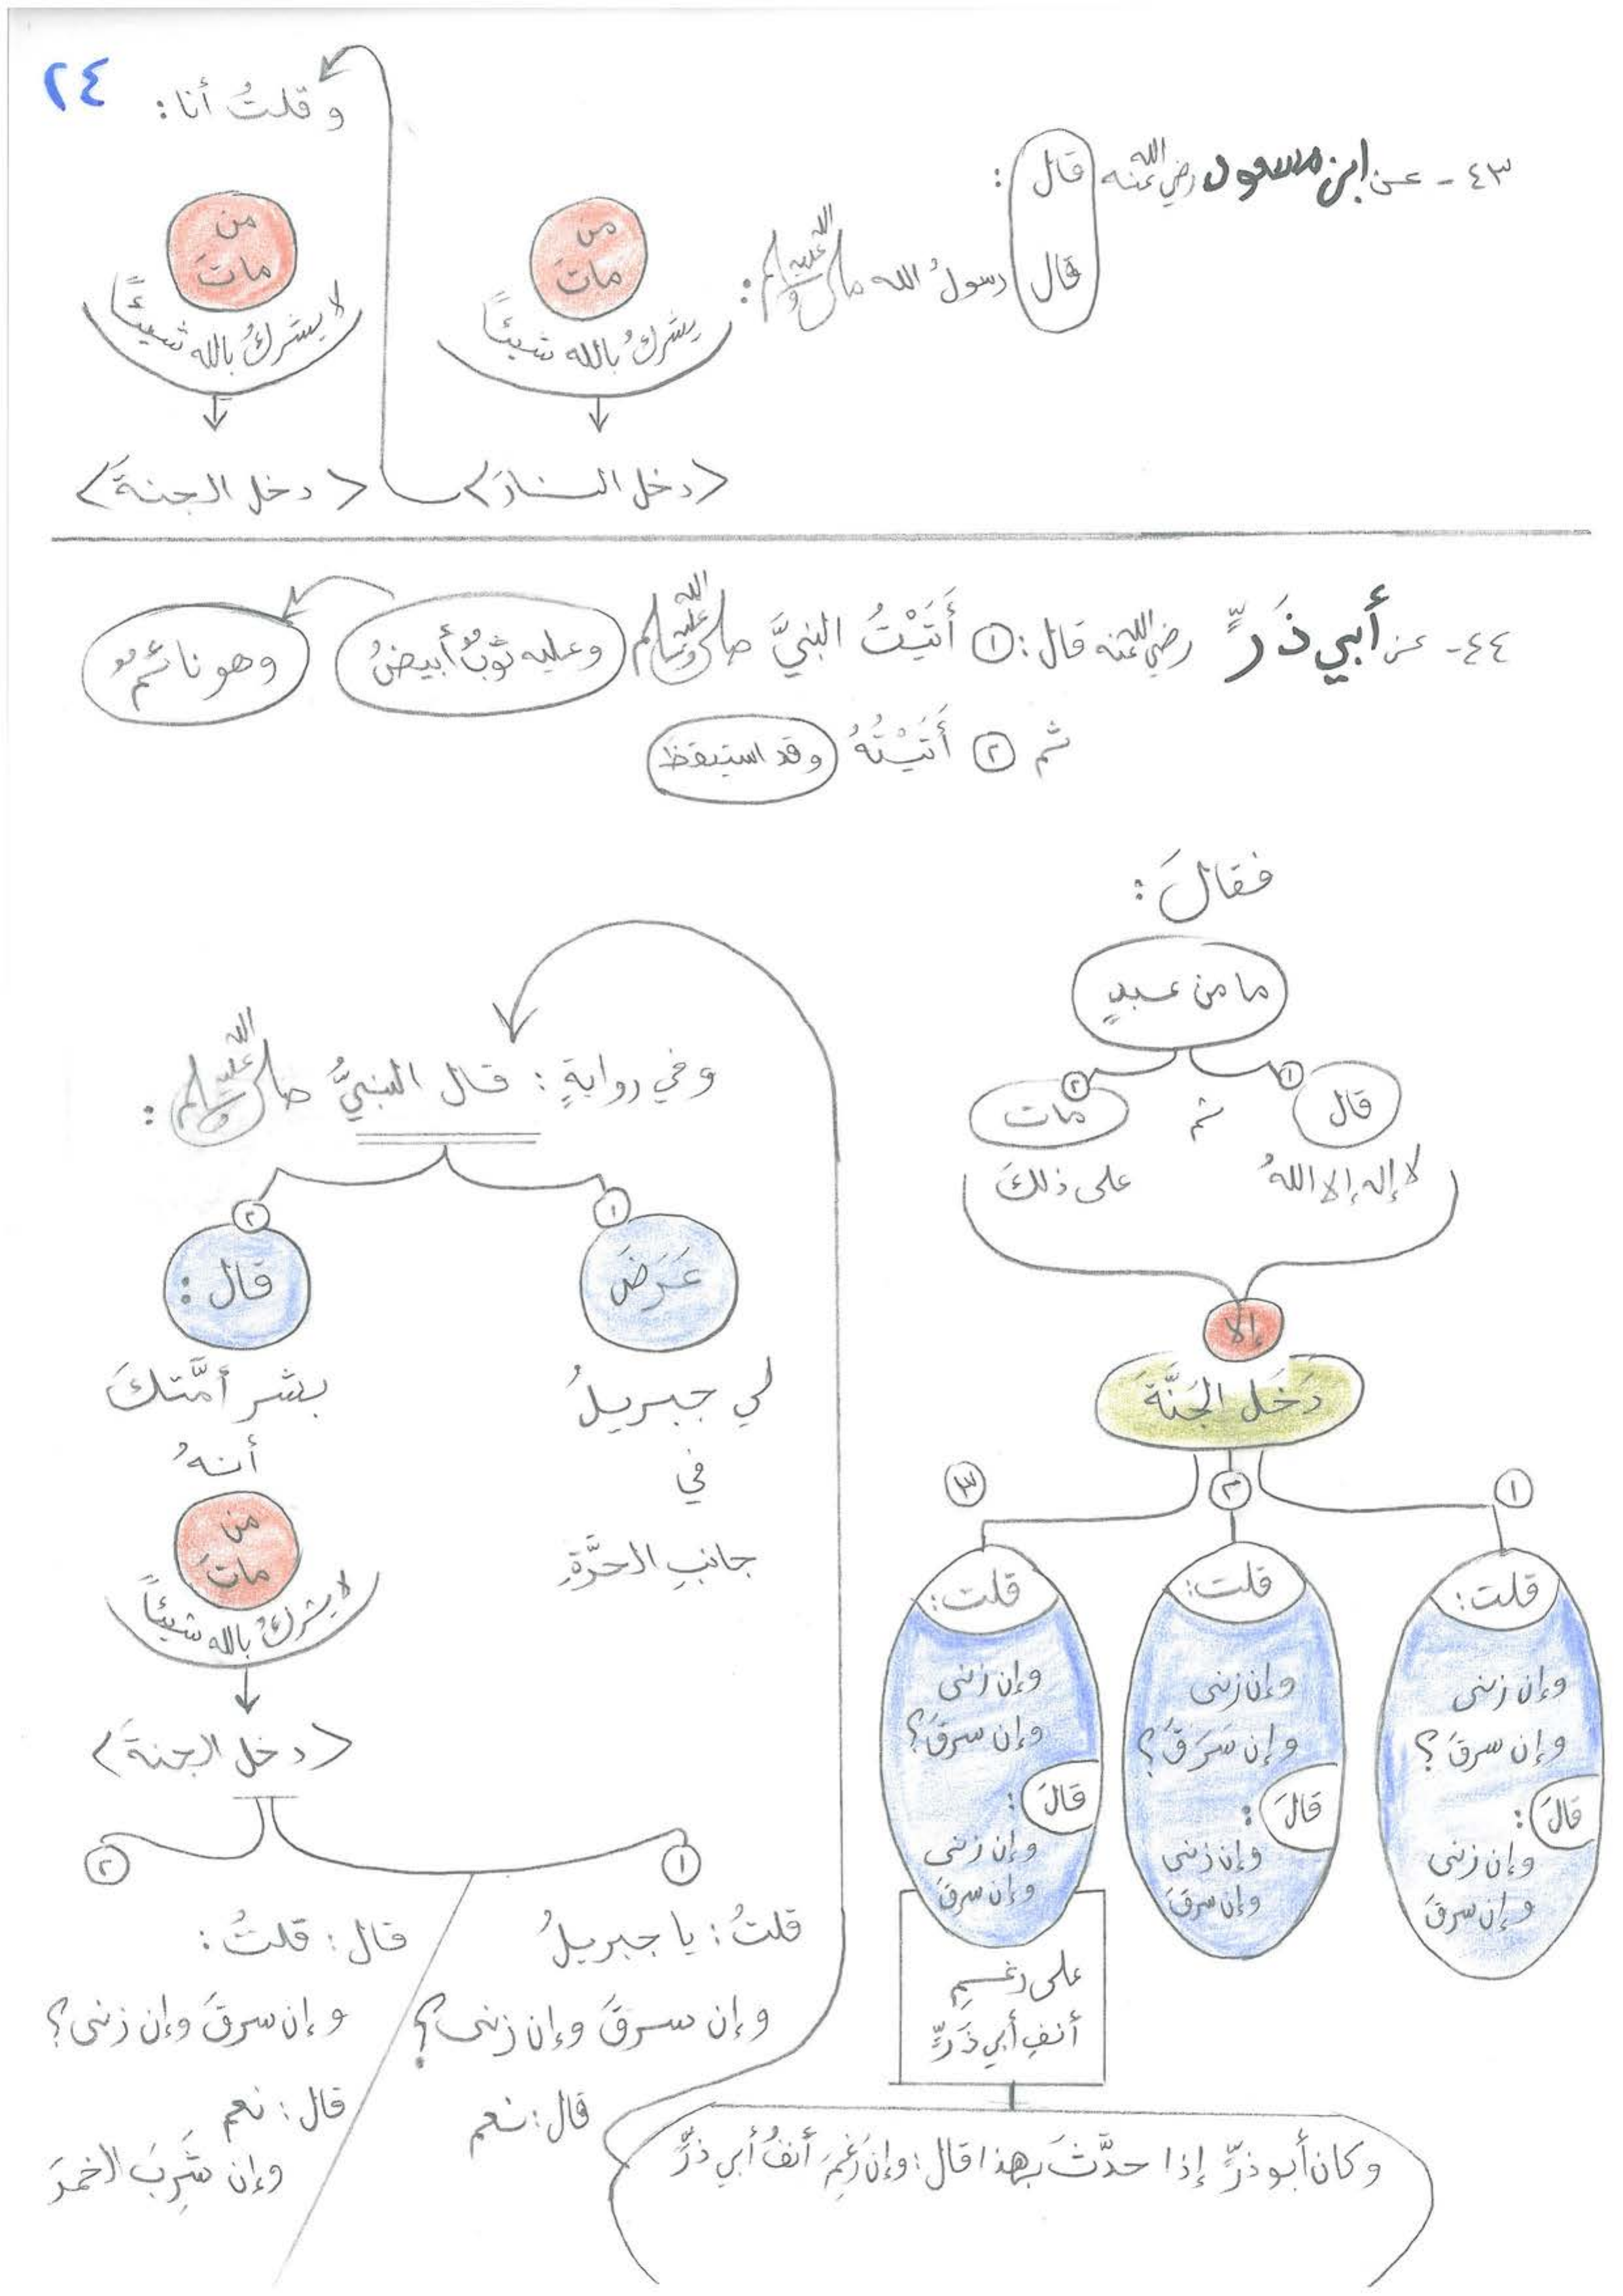 ٢٤
٤٣- عن ابن مسعود رضي الله عنه قال :
قال رسولُ الله صلى الله عليه وسلم :
من
ماتَ
يشركُ بالله شيئاً
<دخل النارَ>
و قلتُ أنا :
من
ماتَ
لا يشركُ بالله شيئاً
<دخل الجنةَ>
٤٤- عن أبي ذَرٍّ رضي الله عنه قال : ١ أَتَيْتُ النبيَّ صلى الله عليه وسلم وعليه ثوبٌ أبيضُ وهو نائمٌ
ثم ٢ أَتَيْتُهُ وقد استيقظَ
فقالَ :
ما من عبدٍ
١ قال ثم ٢ مات
لا إله إلا اللهُ على ذلكَ
إلا
دَخَل الجَنَّةَ
١
قلت :
وإن زنى
وإن سرقَ ؟
قالَ :
وإن زنى
وإن سرقَ
٢
قلت :
وإن زنى
وإن سَرَقَ ؟
قالَ :
وإن زنى
وإن سرقَ
٣
قلت :
وإن زنى
وإن سرقَ ؟
قالَ :
وإن زنى
وإن سرقَ
على رغمِ
أنفِ أبي ذَرٍّ
وكان أبو ذرٍّ إذا حدَّثَ بهذا قال : وإن رَغِمَ أنفُ أبي ذرٍّ
وفي روايةٍ : قال النبيُّ صلى الله عليه وسلم :
١
عَرَضَ
لي جبريلُ
في
جانبِ الحَرَّةِ
٢
قال :
بشر أمَّتكَ
أنهُ
من
ماتَ
لا يشركُ بالله شيئاً
<دخل الجنةَ>
١
قلتُ : يا جبريلُ
وإن سرقَ وإن زنى ؟
قال : نعم
٢
قال : قلتُ :
وإن سرقَ وإن زنى ؟
قال : نعم
وإن شَرِبَ الخمرَ